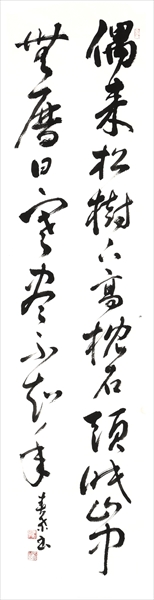 偶来松樹下高枕石頭眠山中
無暦日寒尽不知年